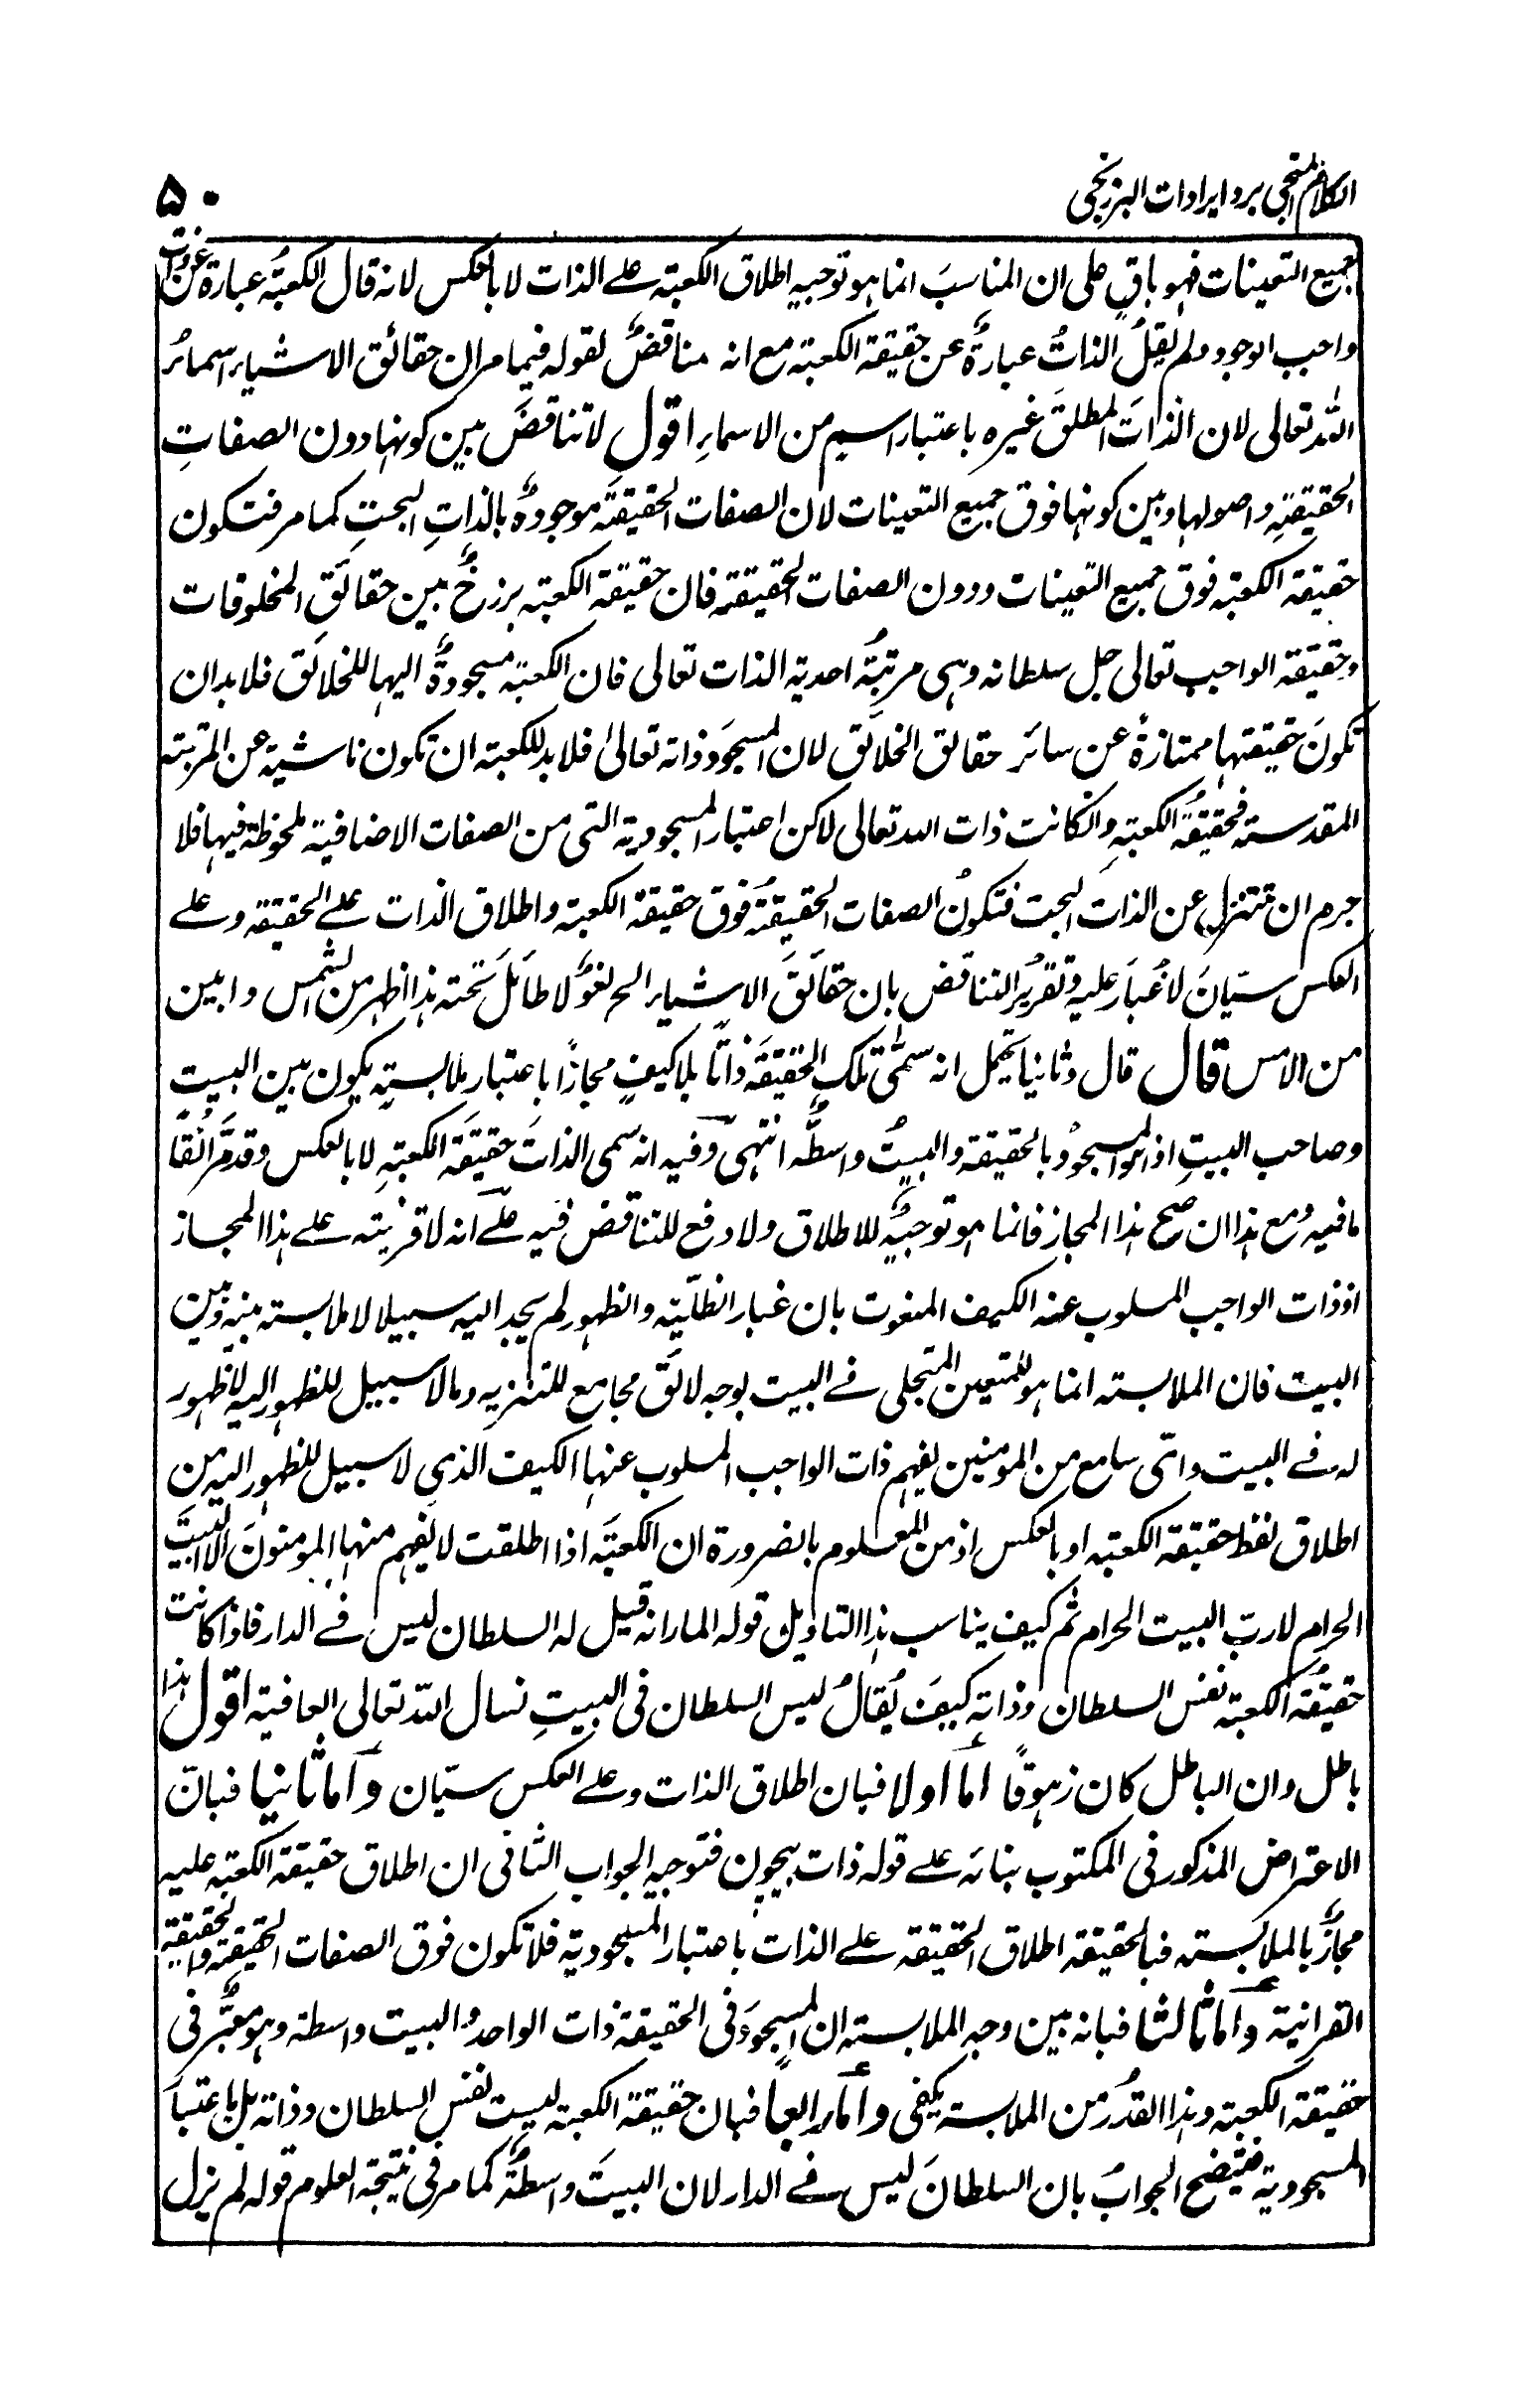 الكلام المنجي برد ايرادات البرزنجي
۵۰
جميع التعينات فهو باقٍ على ان المناسبَ انما هو توجيه اطلاق الكعبة على الذات لا بالعكس لانه قال الكعبةُ عبارة عن ذات
واجب الوجود ولم يقل الذاتُ عبارةٌ عن حقيقة الكعبة مع انه مناقضٌ لقوله فيما مر ان حقائق الاشياء اسماءُ
الله تعالى لان الذات المطلقَ غيره باعتبار اسم من الاسماءِ اقول لا تناقضَ بين كونها دون الصفاتِ
الحقيقيةِ واصولها وبين كونها فوق جميع التعينات لان الصفات الحقيقيةَ موجودةٌ بالذاتِ البحتِ كما مر فتكون
حقيقة الكعبة فوق جميع التعينات ودون الصفات الحقيقية فان حقيقة الكعبة برزخٌ بين حقائق المخلوقات
وحقيقة الواجب تعالى جل سلطانه وهى مرتبةُ احدية الذات تعالى فان الكعبة مسجودةٌ اليها للخلائق فلا بد ان
تكونَ حقيقتها ممتازةً عن سائر حقائق الخلائق لان المسجودَ ذاته تعالىٰ فلا بد للكعبة ان تكون ناشية عن المرتبة
المقدسة فحقيقةُ الكعبةِ وان كانت ذات الله تعالى لاكن اعتبار المسجودية التى من الصفات الاضافية ملحوظة فيها فلا
جرم ان تتنزل عن الذات البحت فتكونُ الصفات الحقيقيةُ فوق حقيقة الكعبة واطلاق الذات على الحقيقة وعلى
العكس سيّان لا غُبارَ عليه وتقريرُ التناقض بان حقائقَ الاشياء الخ لغوٌ لا طائل تحته هذا اظهر من الشمس وابين
من الامس قال قال وثانيا يحتمل انه سمّى تلك الحقيقةَ ذاتًا بلا كيفٍ مجازًا باعتبار ملابسةٍ يكون بين البيتِ
وصاحب البيتِ اذ المسجودُ بالحقيقة هو والبيتُ واسطةٌ انتهى وفيه انه سمى الذاتَ حقيقةَ الكعبةِ لا بالعكس وقد مرّ انفًا
ما فيه ومع هذا ان صح هذا المجاز فانما هو توجيهٌ للاطلاق ولا دفع للتناقض فيه على انه لا قرينة على هذا المجاز
اذ ذات الواجب المسلوب عنه الكيف المنعوت بان غبار الظلّية والظهور لم يجد اليه سبيلا لا ملابسة بينه وبين
البيت فان الملابسة انما هو للمتعين المتجلى فى البيت بوجه لائق مجامع للتنزيه وما لا سبيل للظهور اليه لا ظهور
له فى البيت واىّ سامع من المومنين يفهم ذات الواجب المسلوب عنها الكيف الذى لا سبيل للظهور اليه من
اطلاق لفظ حقيقة الكعبة او بالعكس اذ من المعلوم بالضرورة ان الكعبةَ اذا اطلقت لا يفهم منها المومنونَ الا البيتَ
الحرام لا ربّ البيت الحرام ثم كيف يناسب هذا التاويل قوله المار انه قيل له السلطان ليس فى الدار فاذا كانت
حقيقةُ الكعبة نفس السلطان وذاته كيفَ يُقالُ ليس السلطان فى البيتِ نسال الله تعالى العافية اقول هذا
باطل وان الباطل كان زهوقًا اما اولا فبان اطلاق الذات وعلى العكس سيّان واما ثانيا فبانّ
الاعتراض المذكور فى المكتوب بناءه على قوله ذات بيچون فتوجيه الجواب الثانى ان اطلاق حقيقة الكعبة عليه
مجازٌ بالملابسة فبالحقيقة اطلاق الحقيقة على الذات باعتبار المسجودية فلا تكون فوق الصفات الحقيقية والحقيقة
القرانية واما ثالثا فبانه بين وجه الملابسة ان المسجودَ فى الحقيقة ذات الواحد والبيت واسطة وهو معتبرٌ فى
حقيقة الكعبة وهذا القدرُ من الملابسة يكفى واما رابعا فبان حقيقة الكعبة ليست نفس السلطان وذاته بل باعتبار
المسجودية فيتضح الجوابُ بان السلطانَ ليس فى الدار لان البيتَ واسطةٌ كما مر فى نتيجة العلوم قوله لم يزل